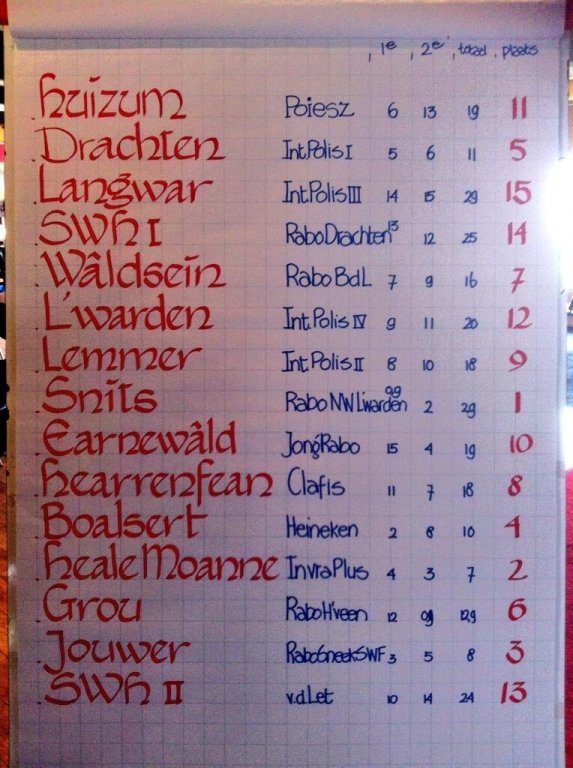 1e 2e totaal plaats
Huizum Poiesz 6 13 19 11
Drachten Int.Polis I 5 6 11 5
Langwar Int.Polis III 14 15 29 15
SWH I Rabo Drachten 13 12 25 14
Wâldsein Rabo BdL 7 9 16 7
L'warden Int.Polis IV 9 11 20 12
Lemmer Int.Polis II 8 10 18 9
Snits Rabo NW L'warden 0,9 2 2,9 1
Earnewâld Jong Rabo 15 4 19 10
Hearrenfean Clafis 11 7 18 8
Boalsert Heineken 2 8 10 4
Heale Moanne Invra Plus 4 3 7 2
Grou Rabo H'veen 12 0,9 12,9 6
Jouwer Rabo Sneek SWF 3 5 8 3
SWH II v.d Let 10 14 24 13